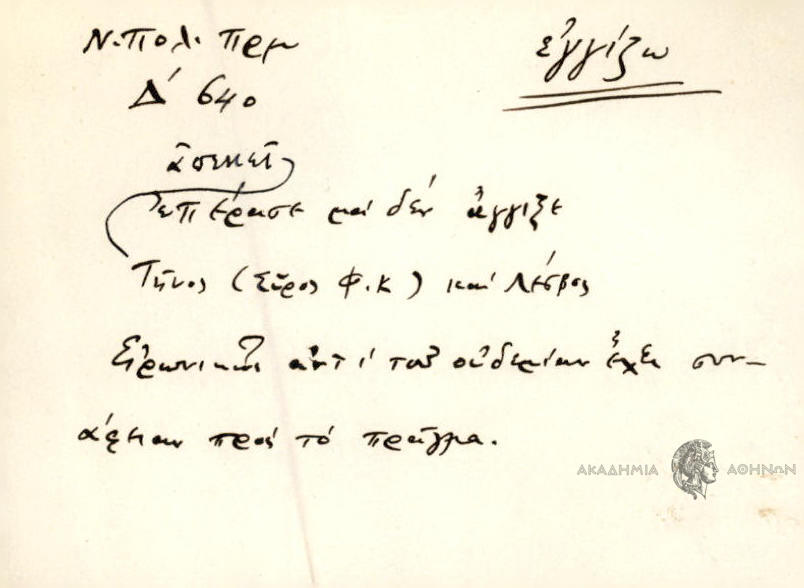 Ν. Πολ. Παρμ
Δ' 640
ἐγγίζω
ἀπεκεῖ
ἐπέρασε καὶ δὲν ἄγγιξε
Τῆνος (Σῦρος Φ.Κ) καὶ Λέσβος
Εἰρωνικῶς ἀντὶ τοῦ οὐδεμίαν ἔχει συν-
άφειαν πρὸς τὸ πρᾶγμα.
ΑΚΑΔΗΜΙΑ ΑΘΗΝΩΝ